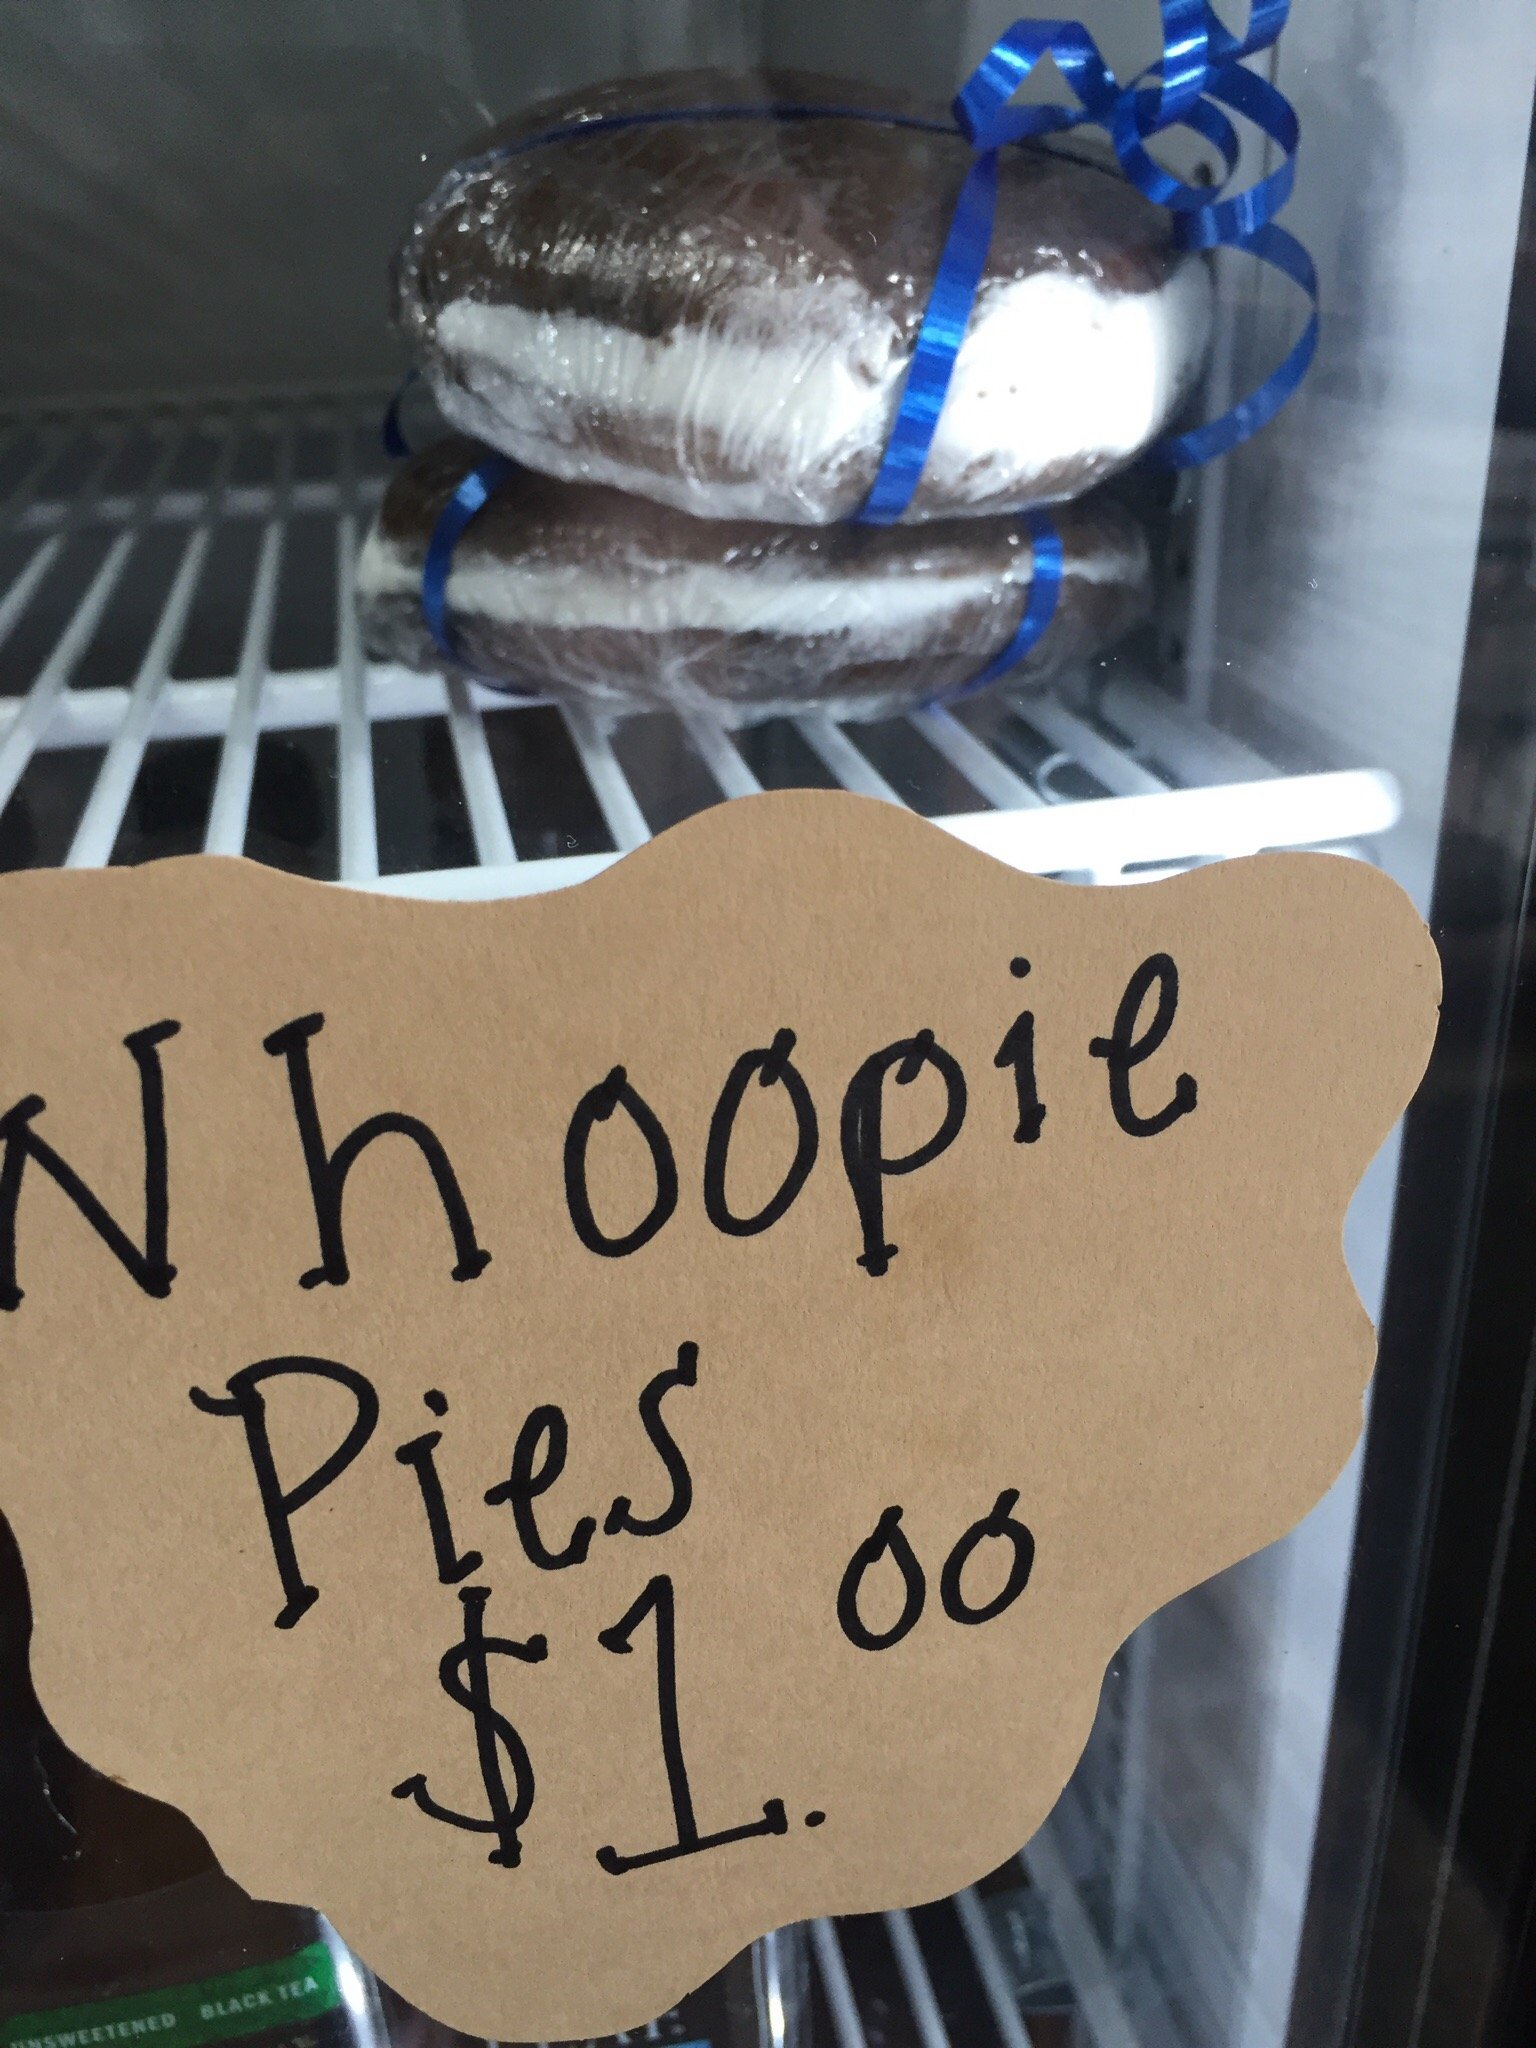 Whoopie
Pies
$1.00
UNSWEETENED BLACK TEA